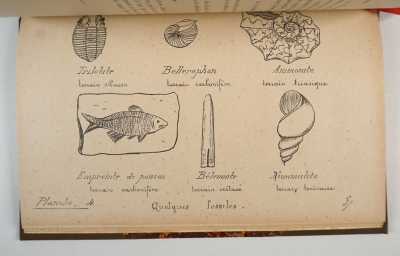 Trilobite Bellerophon Ammonite
terrain silurien terrain carbonifère terrain triasique
Empreinte de poisson Bélemnite Nummulite
terrain carbonifère terrain crétacé terrain tertiaire
Planche. 4.
Quelques fossiles.